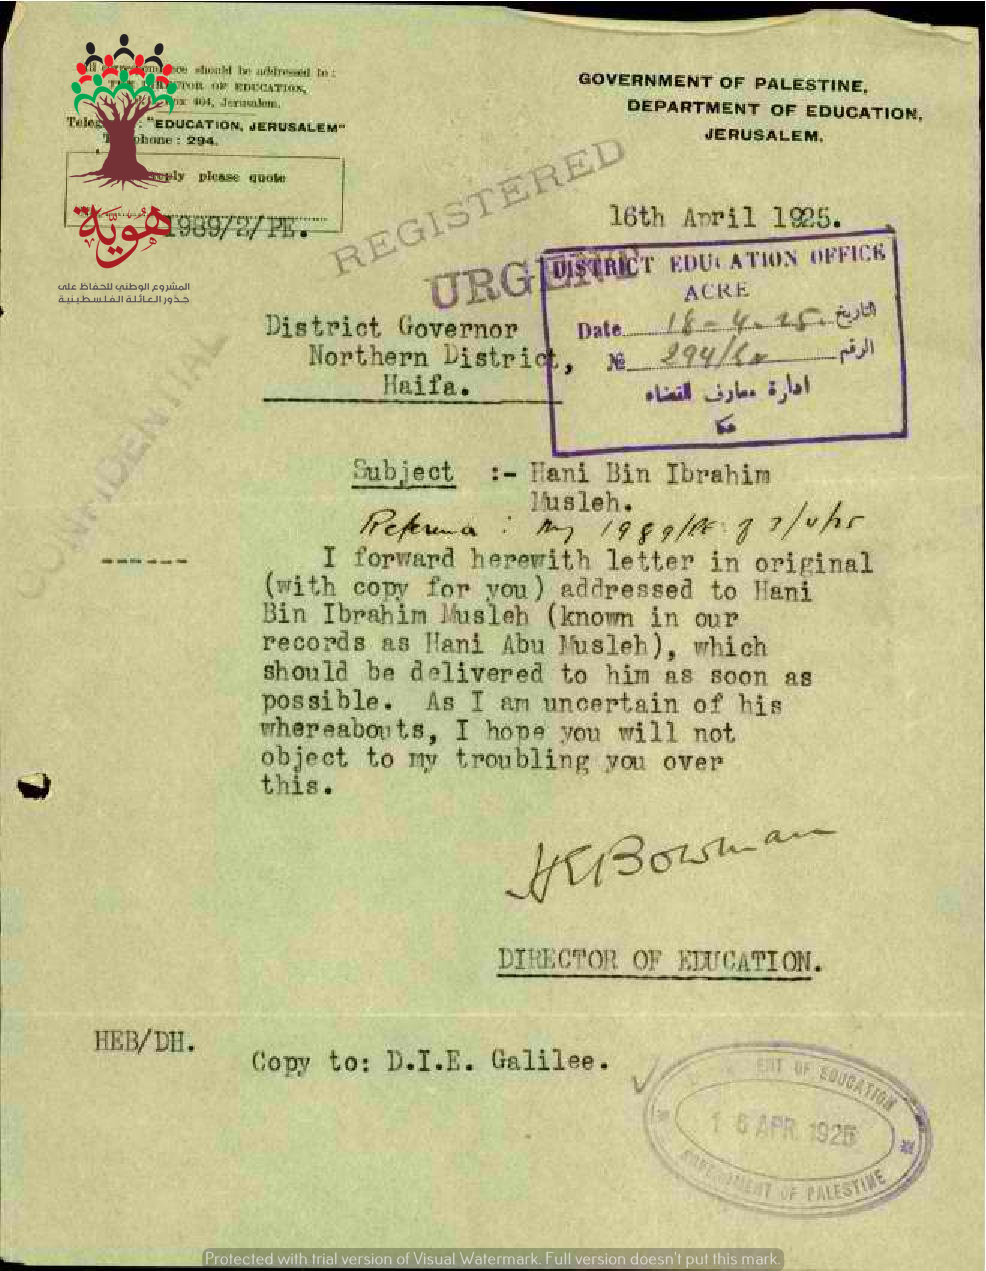 should be addressed to :
OF EDUCATION,
404, Jerusalem.
: "EDUCATION, JERUSALEM"
: 294.
reply please quote
1989/2/PE.
هُوِيَّة
المشروع الوطني للحفاظ على
جذور العائلة الفلسطينية
GOVERNMENT OF PALESTINE,
DEPARTMENT OF EDUCATION,
JERUSALEM.
REGISTERED
16th April 1925.
URGENT
CONFIDENTIAL
DISTRICT EDUCATION OFFICE
ACRE
Date 18-4-25. التاريخ
№ 294/ الرقم
ادارة معارف القضاء
عكا
District Governor
Northern District,
Haifa.
Subject :- Hani Bin Ibrahim
Musleh.
Reference : My 1989/PE of 7/4/25
------
I forward herewith letter in original
(with copy for you) addressed to Hani
Bin Ibrahim Musleh (known in our
records as Hani Abu Musleh), which
should be delivered to him as soon as
possible. As I am uncertain of his
whereabouts, I hope you will not
object to my troubling you over
this.
HEBowman
DIRECTOR OF EDUCATION.
HEB/DH.
Copy to: D.I.E. Galilee.
OF EDUCATION
16 APR. 1925
GOVERNMENT OF PALESTINE
Protected with trial version of Visual Watermark. Full version doesn't put this mark.